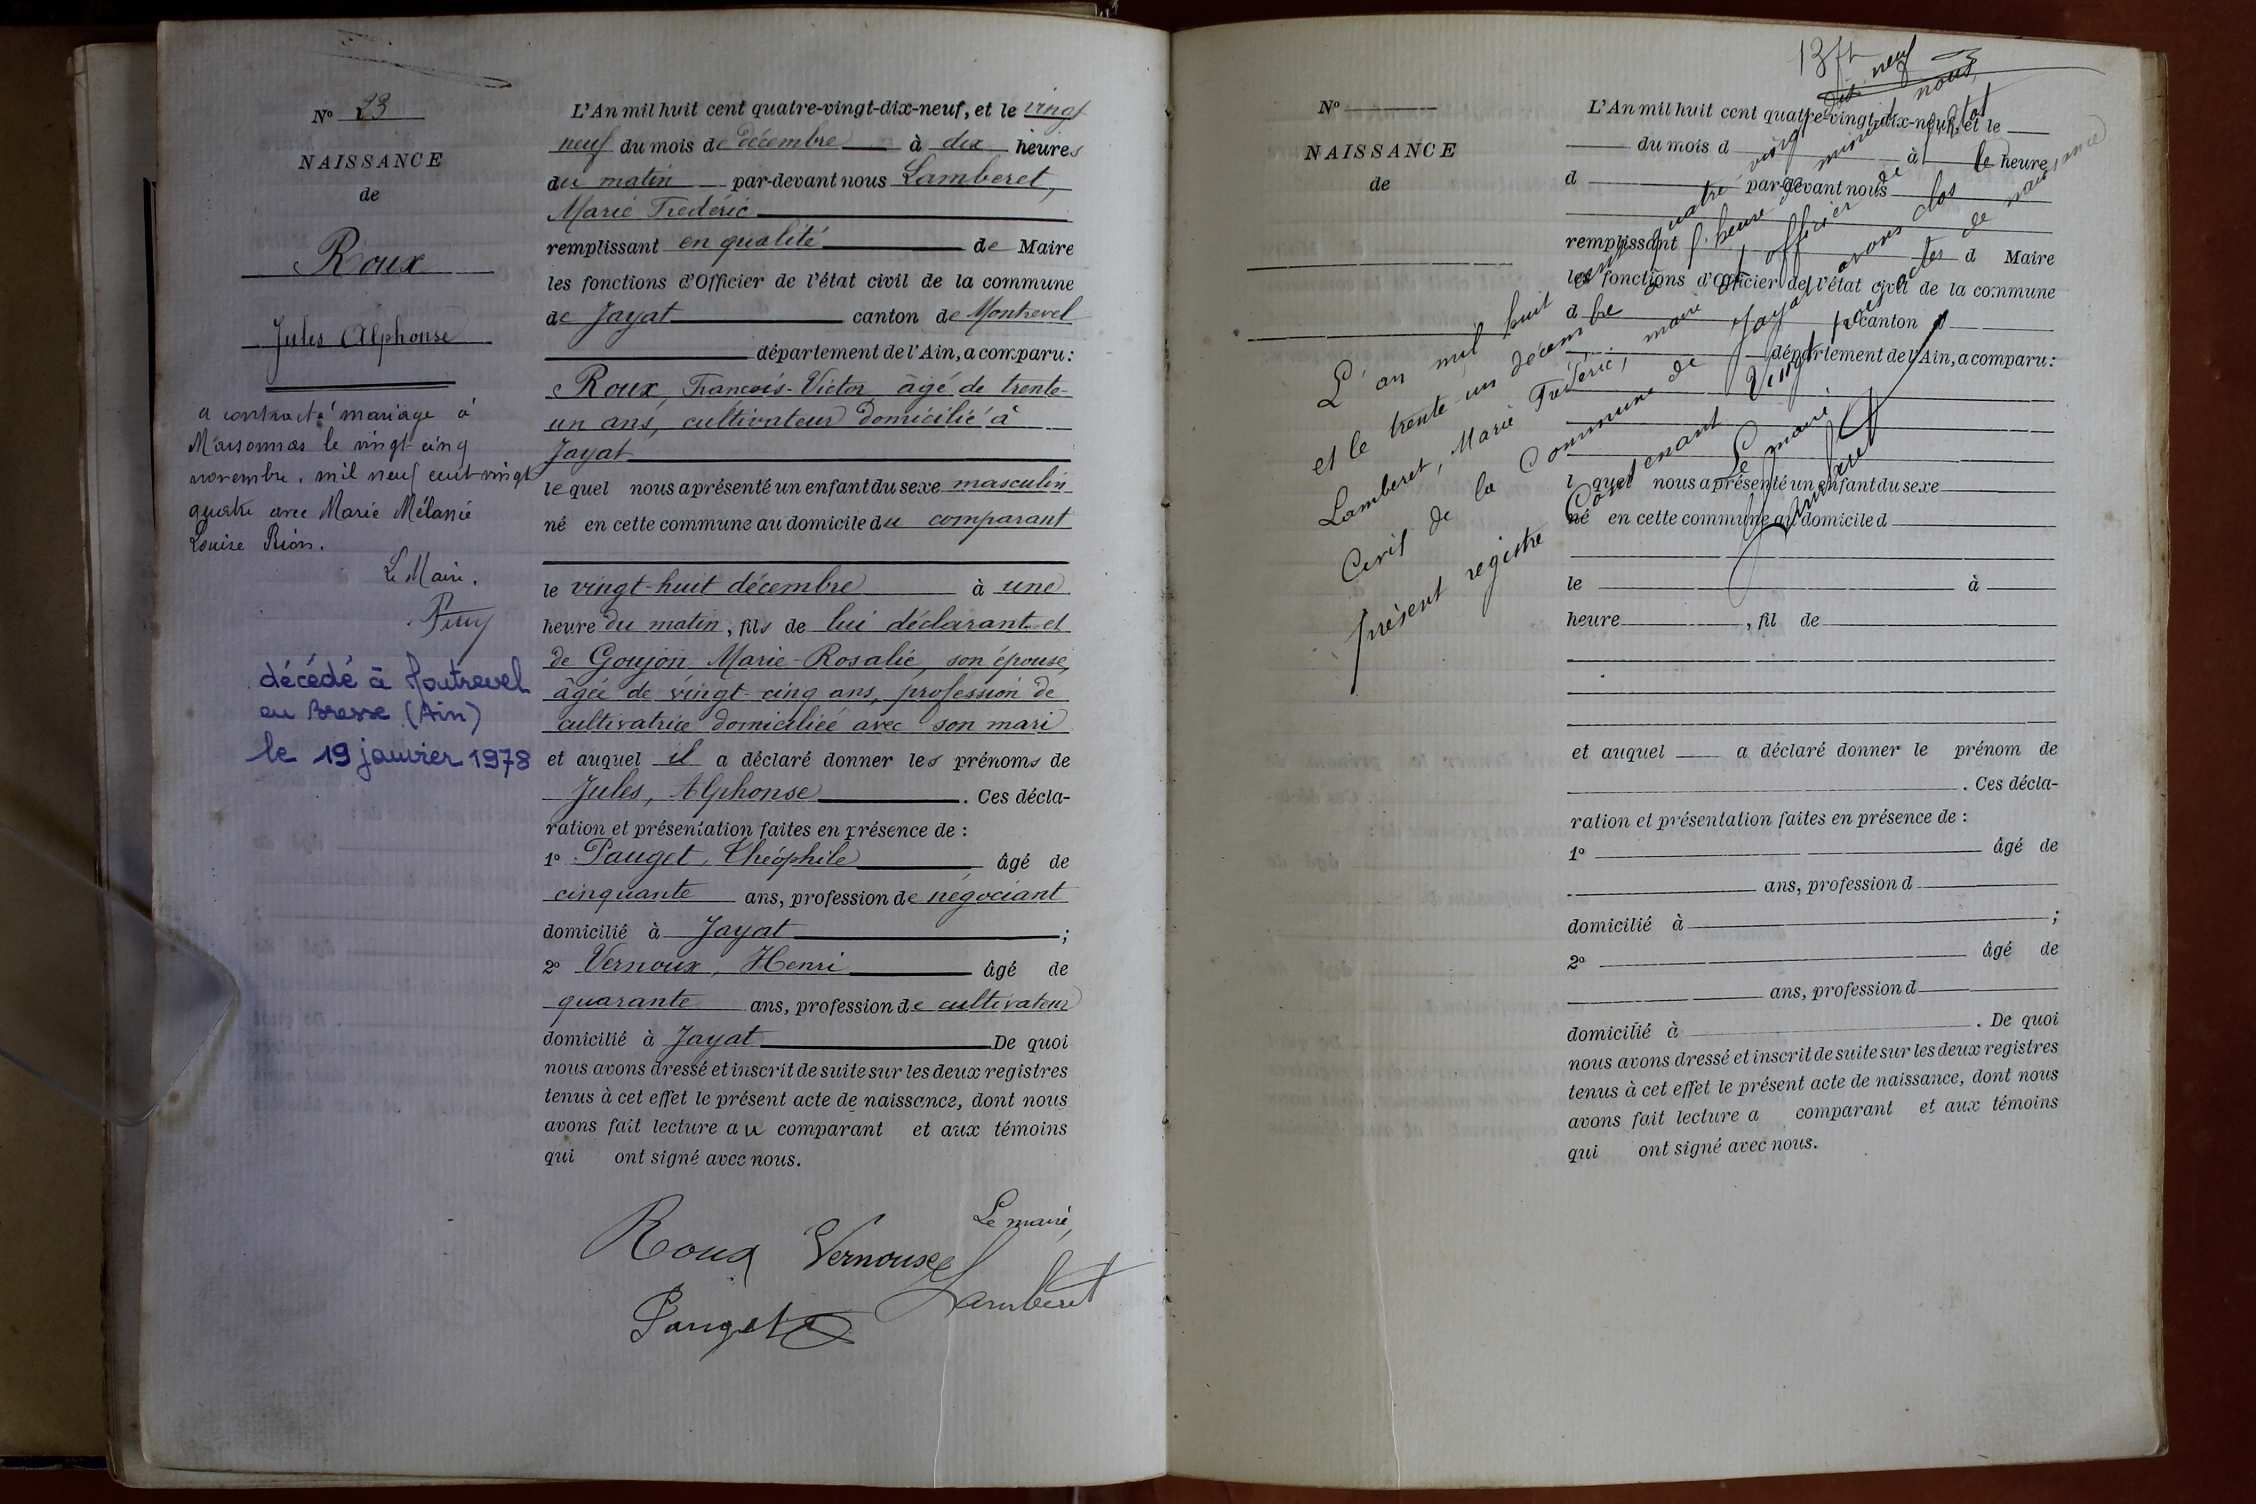 N° 23
NAISSANCE
de
Roux
Jules Alphonse
a contracté mariage à
Marsonnas le vingt cinq
novembre mil neuf cent vingt
quatre avec Marie Mélanie
Louise
Le Maire,
décédé à Montrevel
en Bresse (Ain)
le 19 janvier 1978
L'An mil huit cent quatre-vingt-dix-neuf, et le vingt
neuf du mois de décembre à dix heures
du matin par-devant nous Lamberet,
Marie Frédéric
remplissant en qualité de Maire
les fonctions d'Officier de l'état civil de la commune
de Jayat canton de Montrevel
département de l'Ain, a comparu :
Roux, François-Victor âgé de trente-
un ans, cultivateur domicilié à
Jayat
lequel nous a présenté un enfant du sexe masculin
né en cette commune au domicile du comparant
le vingt-huit décembre à une
heure du matin, fils de lui déclarant et
de Goujon Marie-Rosalie, son épouse,
âgée de vingt-cinq ans, profession de
cultivatrice domiciliée avec son mari
et auquel il a déclaré donner les prénoms de
Jules, Alphonse. Ces décla-
ration et présentation faites en présence de :
1° Pauget, Théophile âgé de
cinquante ans, profession de négociant
domicilié à Jayat ;
2° Vernoux, Henri âgé de
quarante ans, profession de cultivateur
domicilié à Jayat De quoi
nous avons dressé et inscrit de suite sur les deux registres
tenus à cet effet le présent acte de naissance, dont nous
avons fait lecture au comparant et aux témoins
qui ont signé avec nous.
Le maire,
Roux Vernoux
Lamberet
Pauget
N°
NAISSANCE
de
L'An mil huit cent quatre-vingt-dix-neuf, et le
du mois d à heure
d par-devant nous
remplissant d Maire
les fonctions d'Officier de l'état civil de la commune
d canton d
département de l'Ain, a comparu :
l quel nous a présenté un enfant du sexe
né en cette commune au domicile d
le à
heure , fil de
et auquel a déclaré donner le prénom de
. Ces décla-
ration et présentation faites en présence de :
1° âgé de
ans, profession d
domicilié à ;
2° âgé de
ans, profession d
domicilié à . De quoi
nous avons dressé et inscrit de suite sur les deux registres
tenus à cet effet le présent acte de naissance, dont nous
avons fait lecture a comparant et aux témoins
qui ont signé avec nous.
L'an mil huit cent quatre vingt dix neuf
et le trente-un décembre heure de minuit nous
Lamberet, Marie Frédéric, maire et officier de l'état
Civil de la Commune de Jayat avons clos le
présent registre Contenant Vingt trois actes de naissance
Le maire
Lamberet